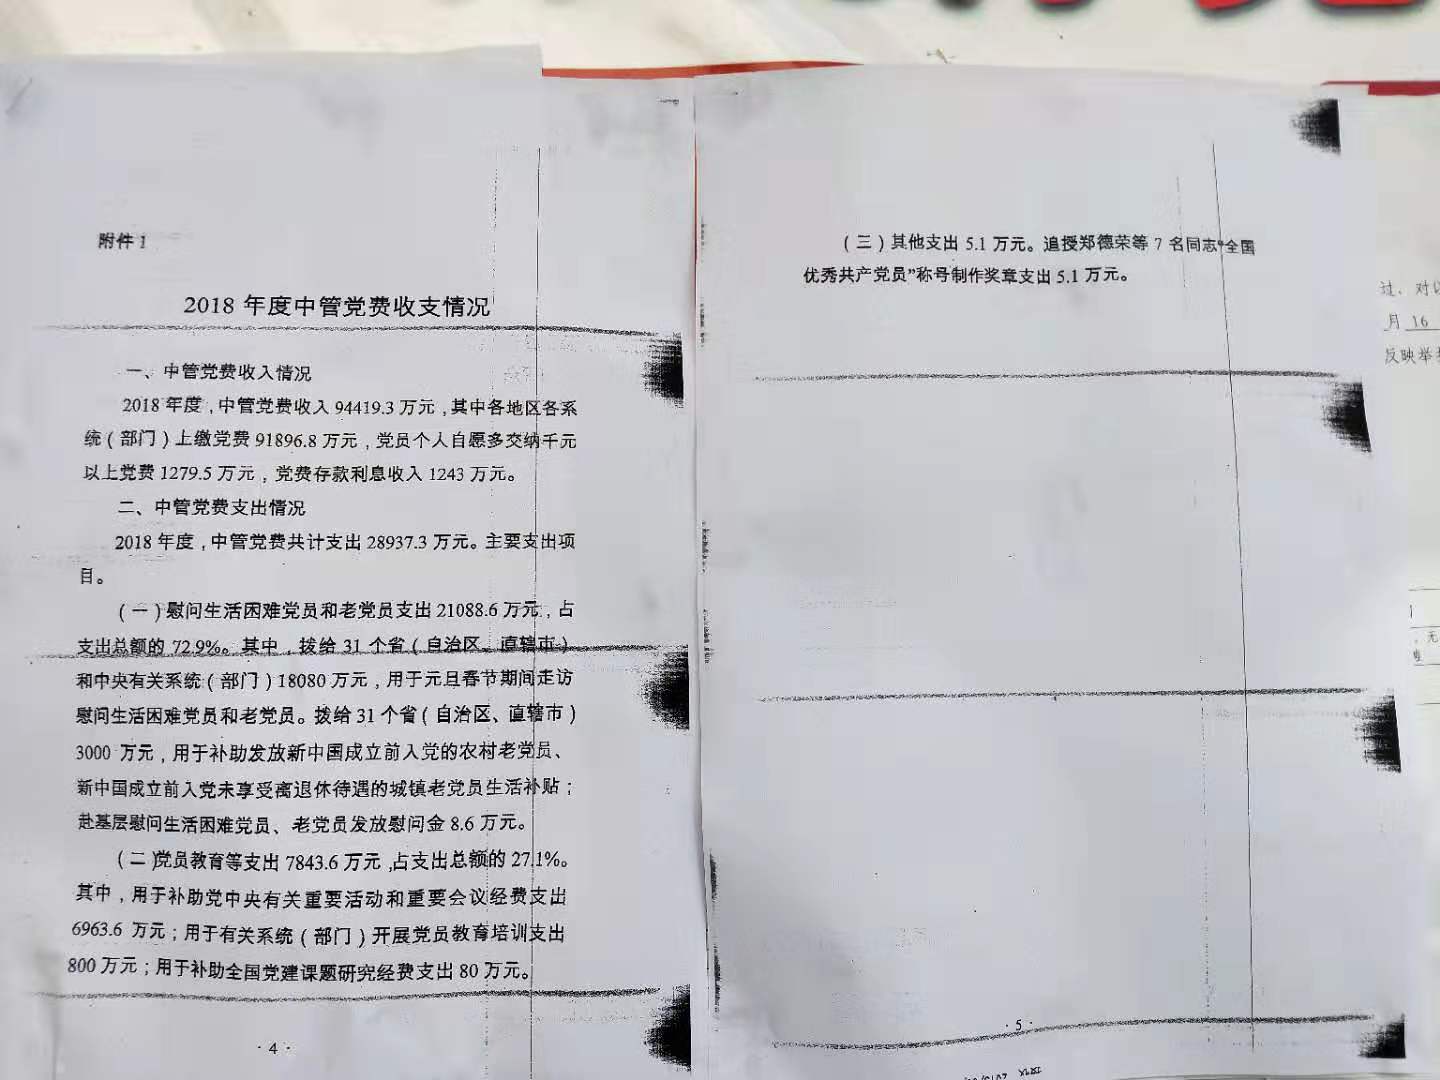 附件1
2018 年度中管党费收支情况
一、中管党费收入情况
2018 年度，中管党费收入 94419.3 万元，其中各地区各系
统（部门）上缴党费 91896.8 万元，党员个人自愿多交纳千元
以上党费 1279.5 万元，党费存款利息收入 1243 万元。
二、中管党费支出情况
2018 年度，中管党费共计支出 28937.3 万元。主要支出项
目。
（一）慰问生活困难党员和老党员支出 21088.6 万元，占
支出总额的 72.9%。其中，拨给 31 个省（自治区、直辖市）
和中央有关系统（部门）18080 万元，用于元旦春节期间走访
慰问生活困难党员和老党员。拨给 31 个省（自治区、直辖市）
3000 万元，用于补助发放新中国成立前入党的农村老党员、
新中国成立前入党未享受离退休待遇的城镇老党员生活补贴；
赴基层慰问生活困难党员、老党员发放慰问金 8.6 万元。
（二）党员教育等支出 7843.6 万元，占支出总额的 27.1%。
其中，用于补助党中央有关重要活动和重要会议经费支出
6963.6 万元；用于有关系统（部门）开展党员教育培训支出
800 万元；用于补助全国党建课题研究经费支出 80 万元。
· 4 ·
（三）其他支出 5.1 万元。追授郑德荣等 7 名同志“全国
优秀共产党员”称号制作奖章支出 5.1 万元。
· 5 ·
过，对
月 16
反映举
无